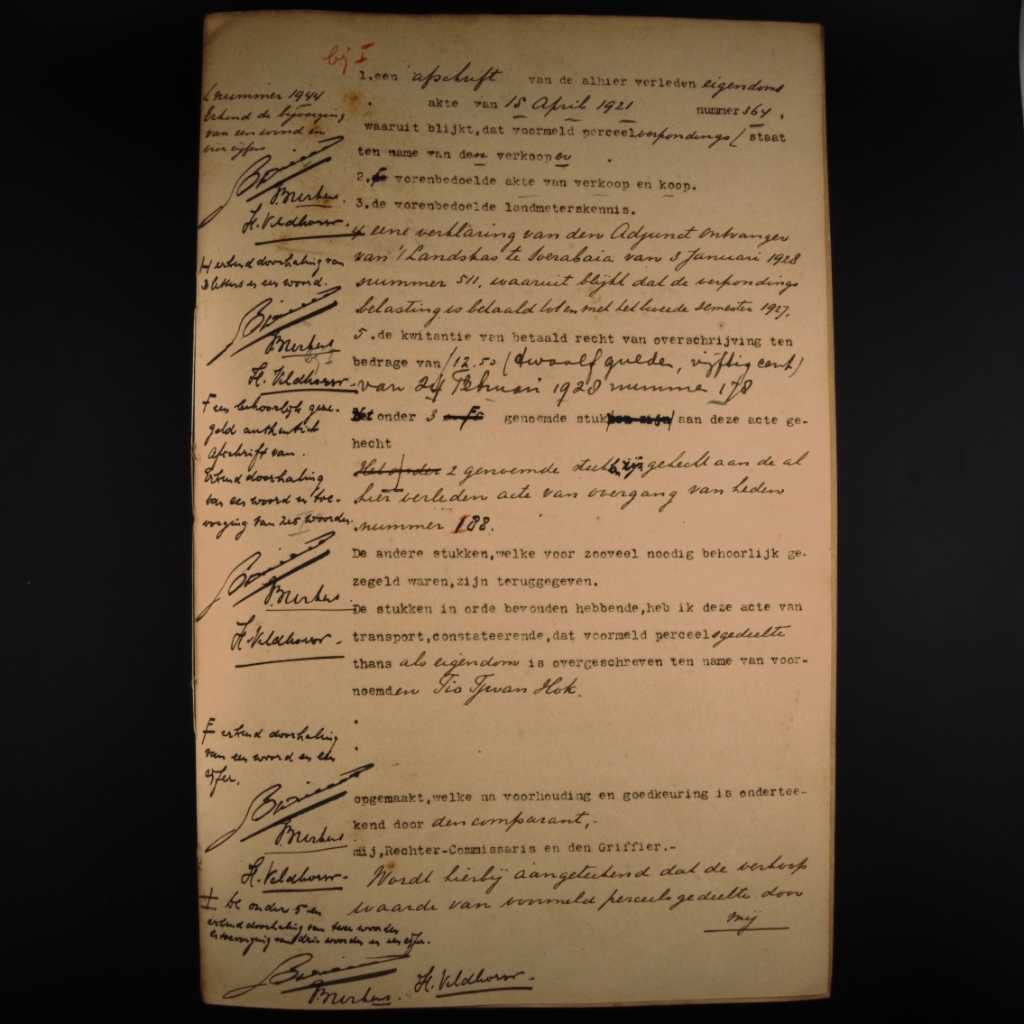 bij I
1.een afschrift van de alhier verleden eigendoms
akte van 15 April 1921 nummer 364,
waaruit blijkt,dat voormeld perceel verpondings staat
ten name van den verkooper
2. vorenbedoelde akte van verkoop en koop.
3.de vorenbedoelde landmeterskennis.
4 eene verklaring van den Adjunct Ontvanger
van 's Landskas te Soerabaia van 3 Januari 1928
nummer 511, waaruit blijkt dat de verpondings
belasting is betaald tot en met het tweede semester 1927.
5.de kwitantie van betaald recht van overschrijving ten
bedrage van ƒ 12.50 (twaalf gulden, vijftig cent)
van 24 Februari 1928 nummer 178
Het onder 3 genoemde stuk aan deze acte ge-
hecht
Het onder 2 genoemde stuk is gehecht aan de al
hier verleden acte van overgang van heden
nummer 188.
De andere stukken,welke voor zooveel noodig behoorlijk ge-
zegeld waren,zijn teruggegeven.
De stukken in orde bevonden hebbende,heb ik deze acte van
transport,constateerende,dat voormeld perceelsgedeelte
thans als eigendom is overgeschreven ten name van voor-
noemden Tio Tjwan Hok.
opgemaakt,welke na voorhouding en goedkeuring is onderte-
kend door den comparant,-
mij,Rechter-Commissaris en den Griffier.-
Wordt hierbij aangeteekend dat de verkoop
waarde van voormeld perceelsgedeelte door
mij
nummer 1944
erkend de bijvoeging
van een woord en
vier cijfers
H. Veldhouw.
H erkend doorhaling van
3 letters en een woord.
H. Veldhouw.
F een behoorlijk geze-
geld authentiek
afschrift van.
Erkend doorhaling
van een woord en toe-
voeging van zes woorden.
H. Veldhouw.
F erkend doorhaling
van een woord en een
cijfer.
H. Veldhouw.
I de onder 5 en
erkend doorhaling van twee woorden
en toevoeging van drie woorden en een cijfer.
H. Veldhouw.